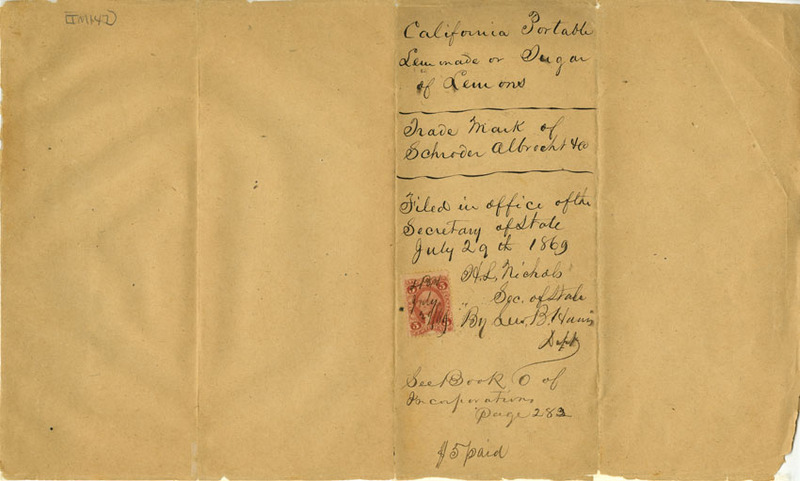 TM142
California Portable
Lemonade or Sugar
of Lemons
Trade Mark of
Schroder Albrecht & Co
Filed in office of the
Secretary of State
July 29th 1869
H. L. Nichols
Sec. of State
By Geo. B. Harris
Dept
July
5
See Book 6 of
Incorporations
page 282
$5 paid